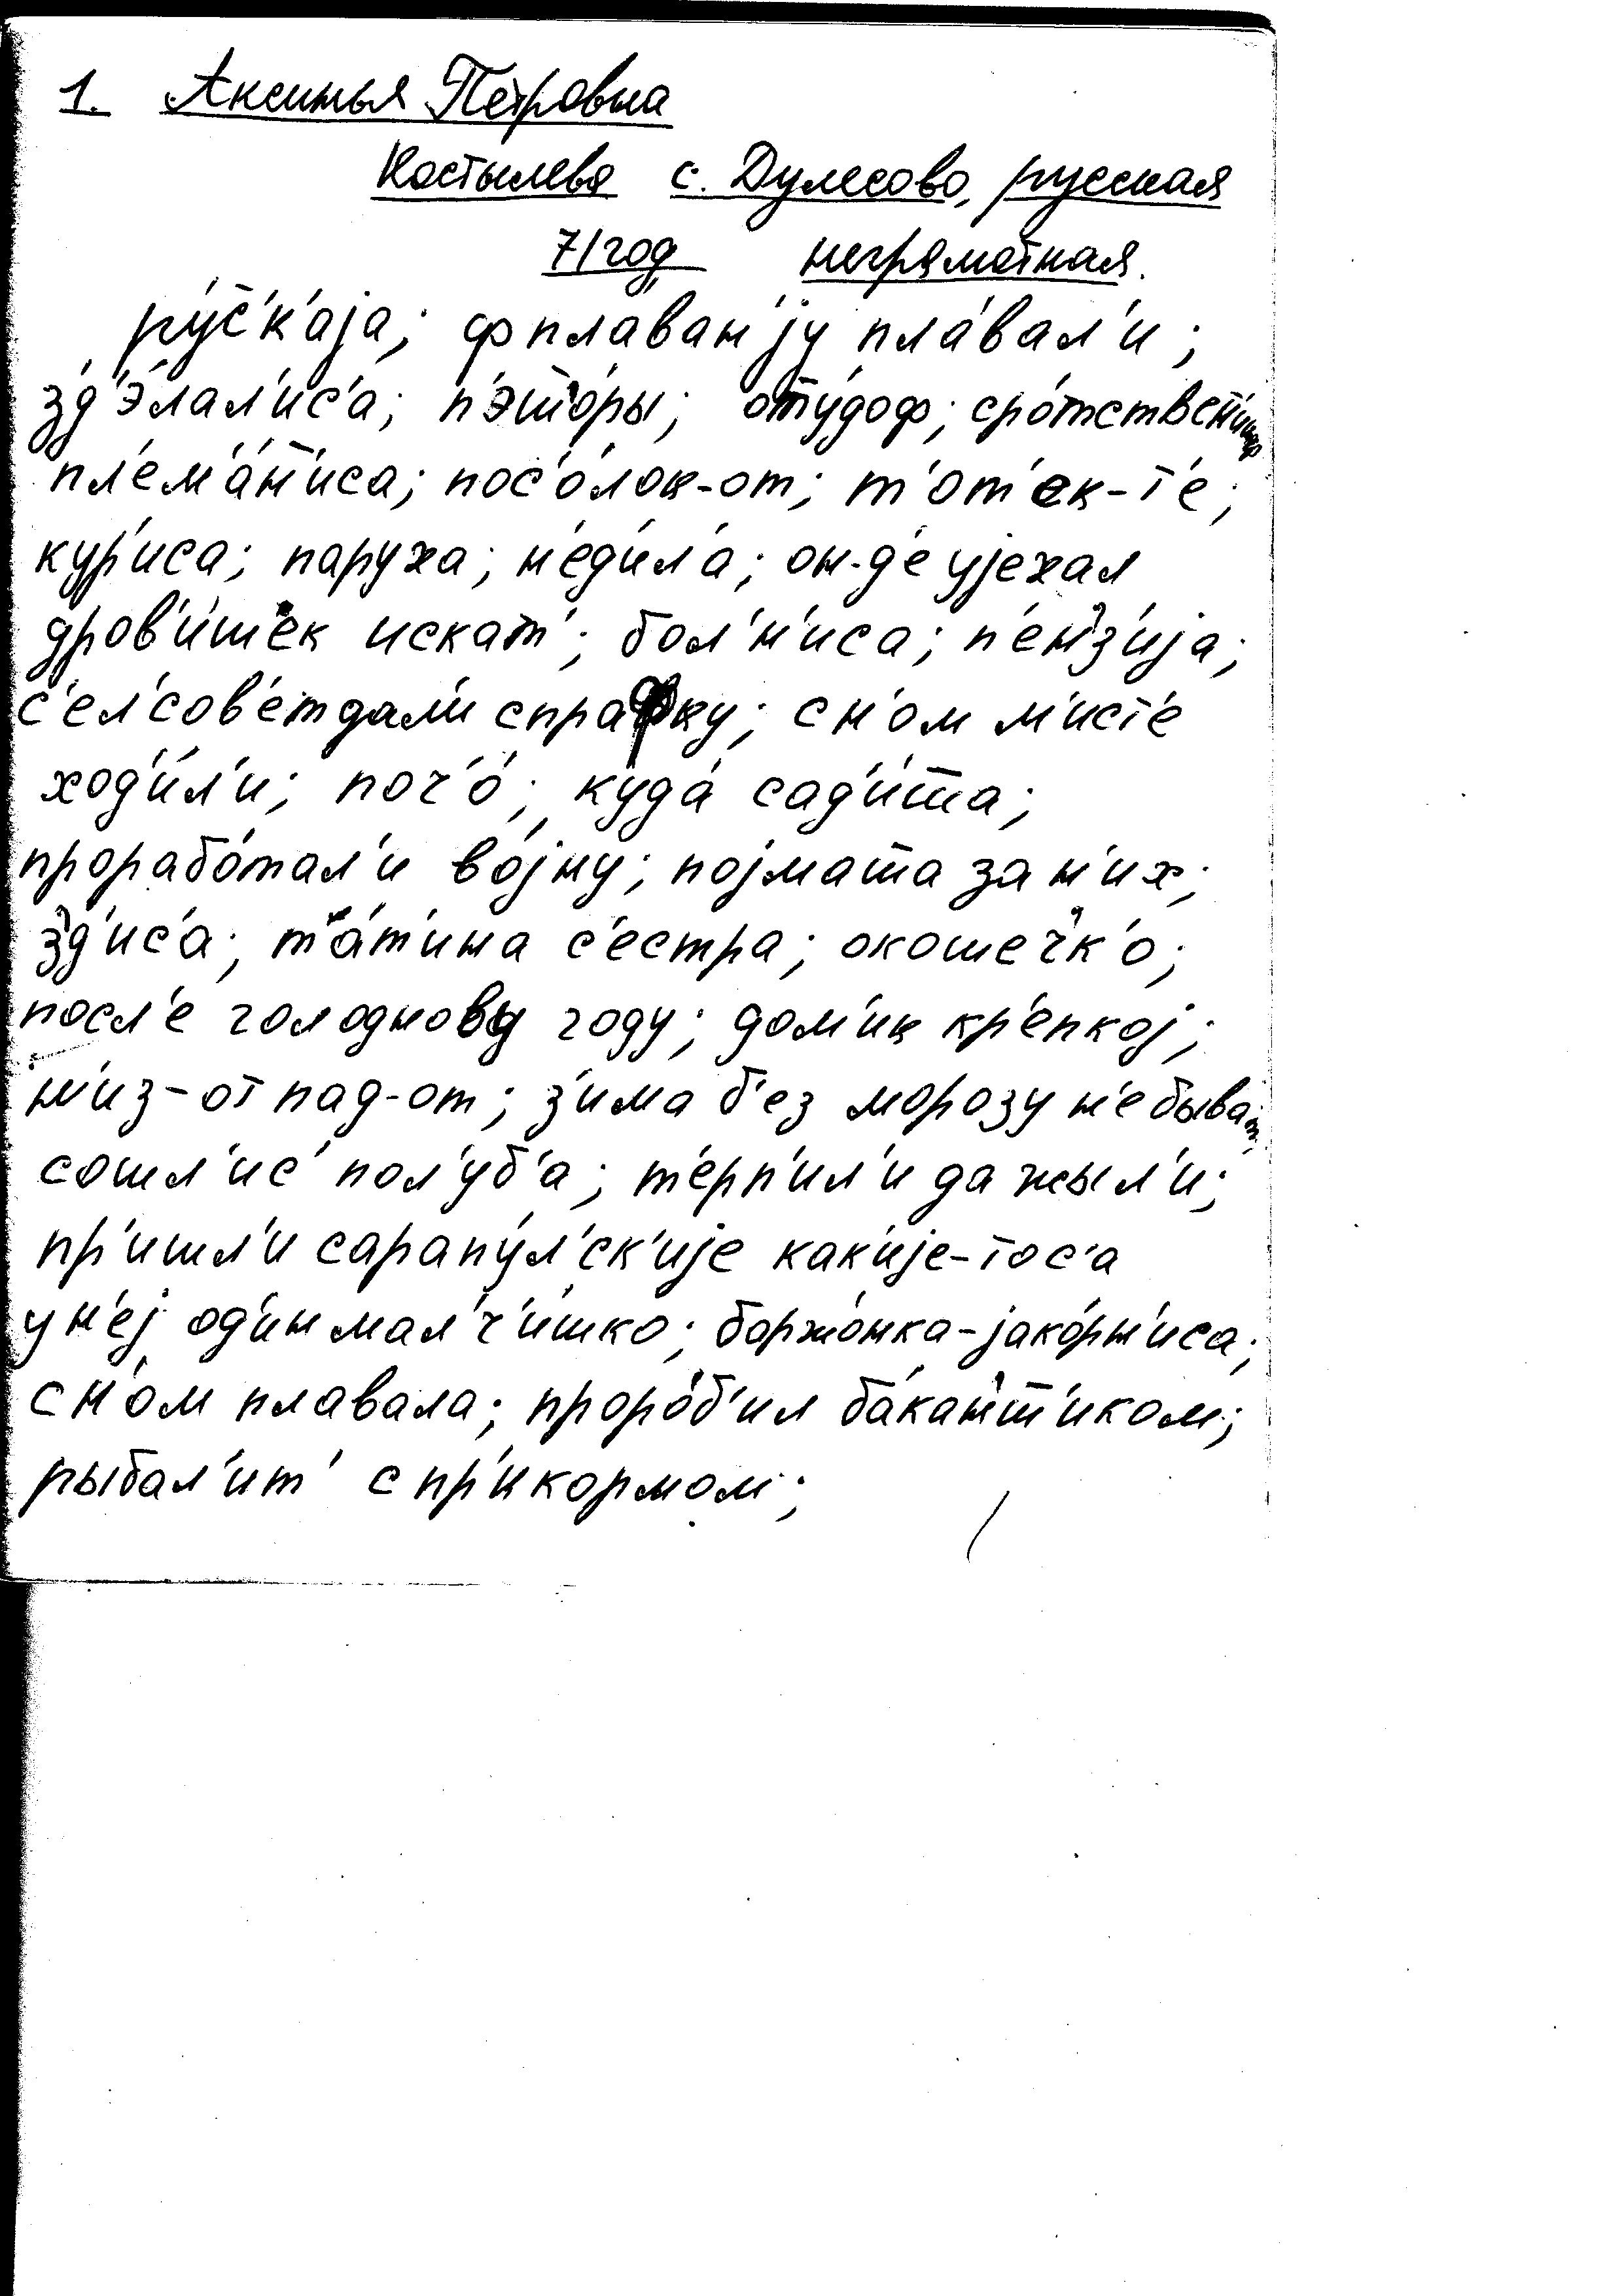 1. Аксинья Петровна
Костылева с. Дулесово, русская
71 год неграмотная.
ру́с'к'аjа; ф плаван'jу пла́вал'и;
зд'э́лал'ис'а; п'это́ры; оту́доф; сро́тствен'ица
пл'ем'а́н'иса; пос'о́лок-от; т'от'ек-т'е;
кур'иса; паруха; н'ед'ил'а; он-д'е уjехал
дров'и́шек искат'; бол'н'иса; п'ен'з'иjа;
с'ел'сов'ет дал'и спрафку; с н'ом м'ист'е
ход'и́л'и; поч'о́; куда́ сад'и́та;
прорабо́тал'и во́jну; поjмата за н'их;
з'д'ис'а; т'а́т'ина с'естра; окошеч'к'о;
посл'е голодново году; дом'ик кр'епкоj;
н'из-от пад-от; з'има б'ез морозу н'е быват;
сошл'ис' пол'уб'а; т'ерп'ил'и да жыл'и;
пр'ишл'и сарапу́л'ск'иjе как'иjе-тос'а
у н'еj од'ин мал'ч'и́шко; баржо́нка-jако́рн'иса;
с н'ом плавала; проро́б'ил ба́кан'т'иком;
рыбал'ит' с пр'икормом;